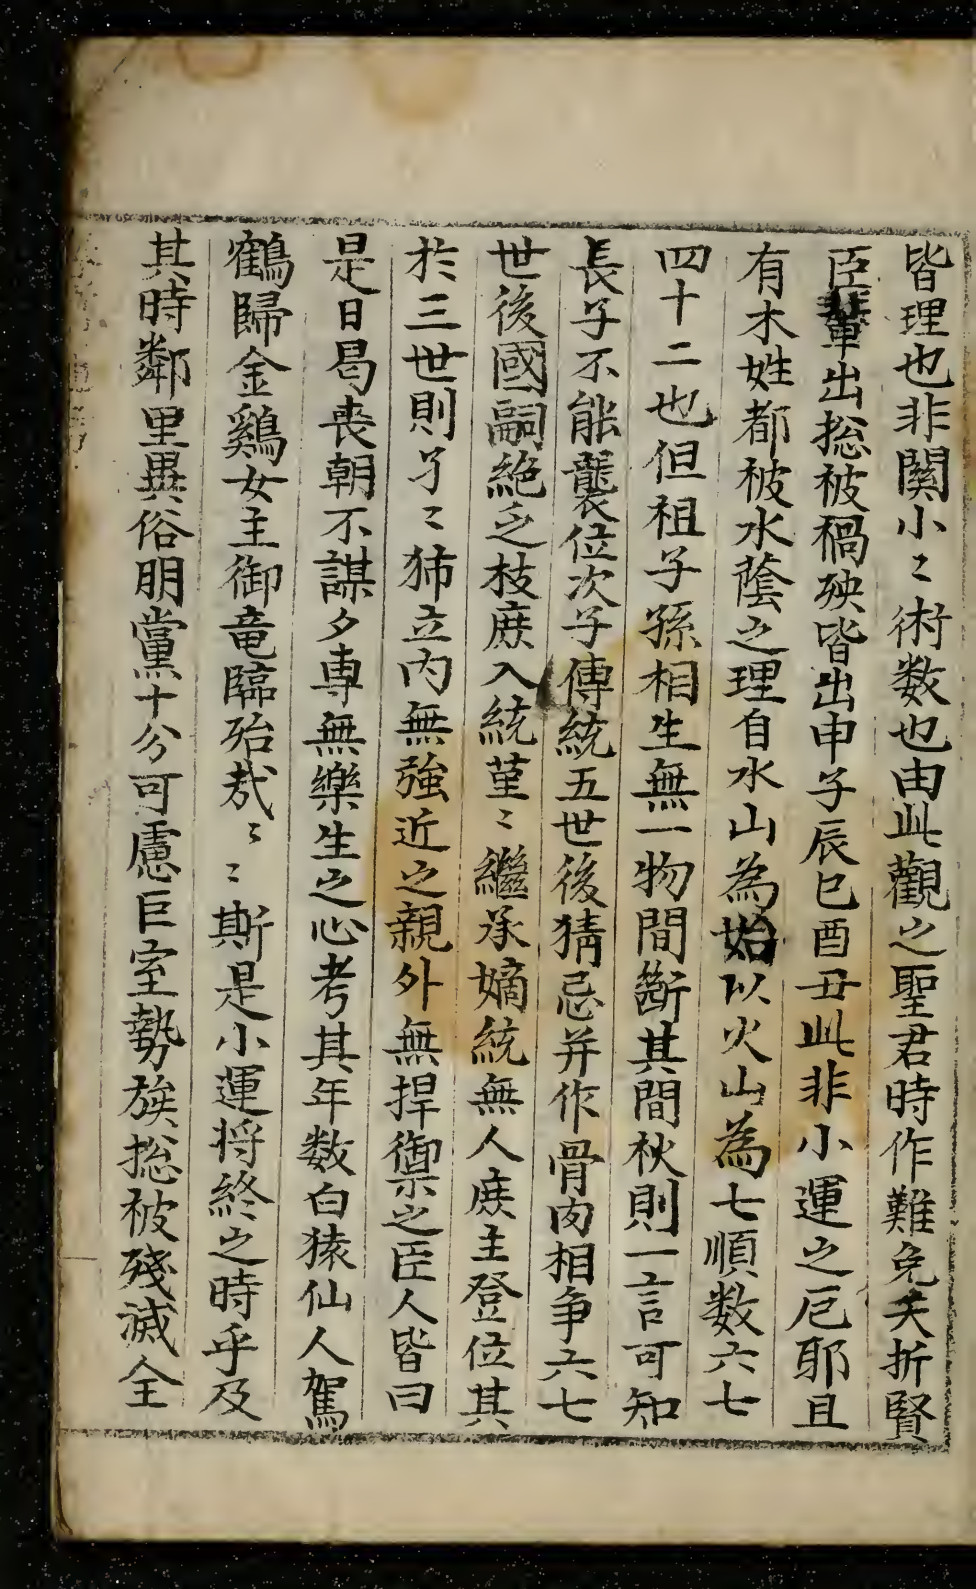 皆理也非関小〻術数也由此觀之聖君時作難免夭折賢
臣輩出捴被禍殃皆出申子辰巳酉丑此非小運之厄耶且
有木姓都被水蔭之理自水山為始以火山為七順数六七
四十二也但祖子孫相生無一物間断其間秋則一言可知
長子不能襲位次子傳統五世後猜忌并作骨肉相争六七
世後國嗣絶乏枝庶入統堇〻繼承嫡統無人庶主登位其
於三世則孑〻㹃立内無強近之親外無捍禦之臣人皆曰
是日曷丧朝不謀夕專無樂生之心考其年数白猿仙人駕
鶴歸金鷄女主御竜臨殆哉〻〻斯是小運将終之時乎及
其時鄰里異俗朋黨十分可慮巨室勢族捴被殘滅全